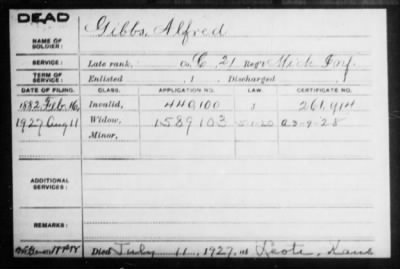 DEAD
NAME OF SOLDIER: Gibbs, Alfred
SERVICE: Late rank, Co. C, 21 Reg't Mich Inf.
TERM OF SERVICE: Enlisted , 1 , Discharged
DATE OF FILING. CLASS. APPLICATION NO. LAW. CERTIFICATE NO.
1882. Feb. 16, Invalid, 440,100 261,914
1927 Aug 11 Widow, 1589103 5-1-20 A 3-9-28
Minor,
ADDITIONAL SERVICES:
REMARKS:
Died July 11, 1927, at Leoti, Kans